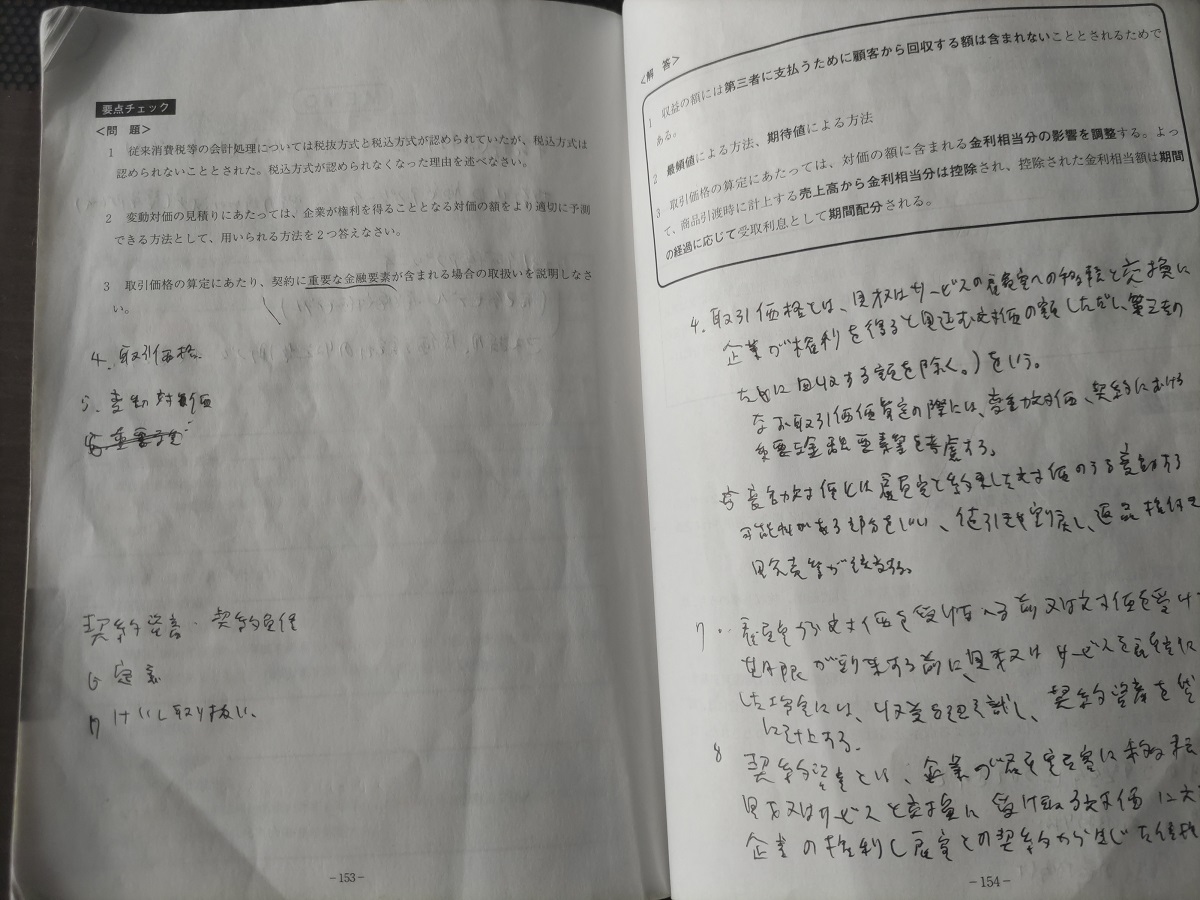 要点チェック
＜問　題＞
1　従来消費税等の会計処理については税抜方式と税込方式が認められていたが、税込方式は
認められないこととされた。税込方式が認められなくなった理由を述べなさい。
2　変動対価の見積りにあたっては、企業が権利を得ることとなる対価の額をより適切に予測
できる方法として、用いられる方法を２つ答えなさい。
3　取引価格の算定にあたり、契約に重要な金融要素が含まれる場合の取扱いを説明しなさ
い。
4. 取引価格
5. 変動対価
契約資産・契約負債
6 定義
7 けいし取り扱い
－153－
＜解　答＞
1　収益の額には第三者に支払うために顧客から回収する額は含まれないこととされるためで
ある。
2　最頻値による方法、期待値による方法
3　取引価格の算定にあたっては、対価の額に含まれる金利相当分の影響を調整する。よっ
て、商品引渡時に計上する売上高から金利相当分は控除され、控除された金利相当額は期間
の経過に応じて受取利息として期間配分される。
4. 取引価格とは、財又はサービスの顧客への移転と交換に
企業が権利を得ると見込む対価の額しただし、第三者の
ために回収する額を除く。）をいう。
なお取引価価算定の際には、変動対価、契約における
重要な金融要素等を考慮する。
変動対価とは顧客と約束した対価のうち変動する
可能性がある部分をいい、値引き、割戻し、返品権付き
販売等が該当する。
7 顧客から対価を受け取る前又は対価を受け
期限が到来する前に、財又はサービスを顧客に
した場合には、収益を認識し、契約資産を
に計上する。
8 契約資産とは、企業が顧客に移転
財又はサービスと交換に受け取る対価に
企業の権利し顧客との契約から生じた債権
－154－